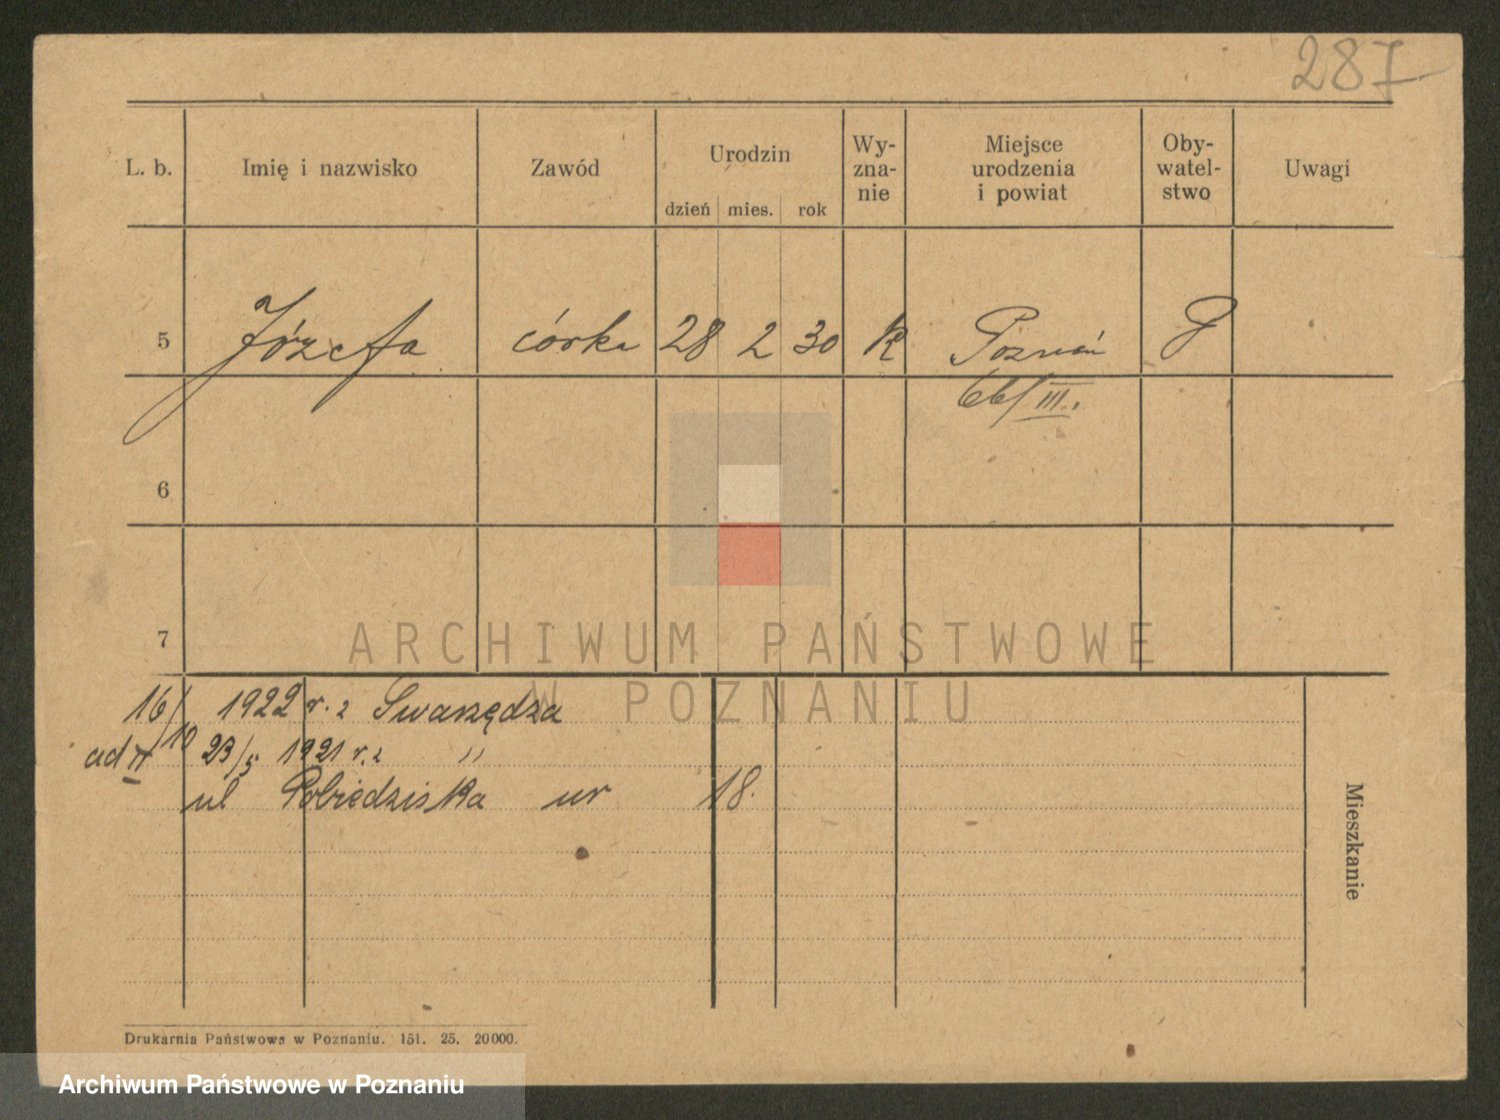 287
L. b. Imię i nazwisko Zawód Urodzin Wy-zna-nie Miejsce urodzenia i powiat Oby-watel-stwo Uwagi
dzień mies. rok
5 Józefa córka 28 2 30 K Poznań P
66/III.
6
7
ARCHIWUM PAŃSTWOWE
W POZNANIU
16/10 1922 r. z Swarzędza
ad II 23/5 1921 r. z "
ul Pobiedziska nr 18.
Mieszkanie
Drukarnia Państwowa w Poznaniu. 151. 25. 20000.
Archiwum Państwowe w Poznaniu